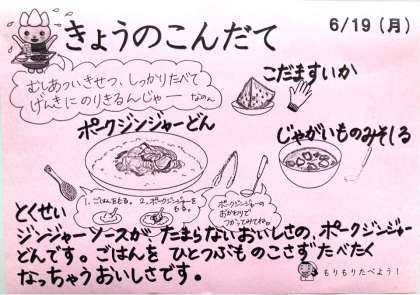 きょうのこんだて
6/19(月)
むしあついきせつ、しっかりたべて
げんきにのりきるんじゃー なのん
こだますいか
ポークジンジャーどん
じゃがいものみそしる
1、ごはんをもる。
2、ポークジンジャーを
もる。
ポークジンジャーの
おかわりで
つかってみてね。
とくせい
ジンジャーソースが、たまらないおいしさの、ポークジンジャー
どんです。ごはんを ひとつぶも のこさず たべたく
なっちゃうおいしさです。
もりもりたべよう!